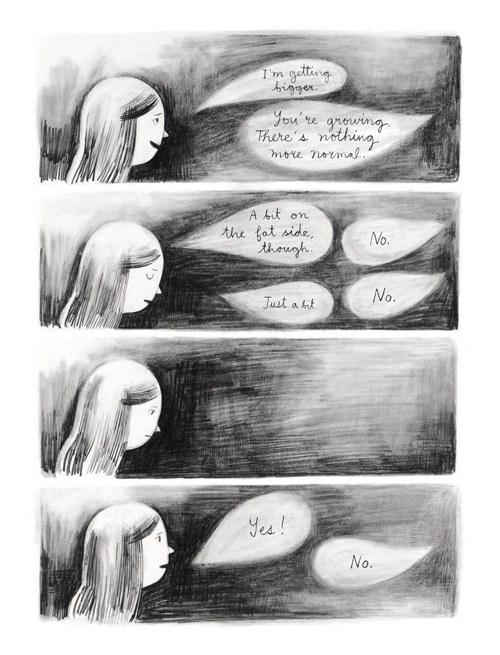 I'm getting
bigger.
You're growing.
There's nothing
more normal.
A bit on
the fat side,
though.
No.
Just a bit.
No.
Yes!
No.